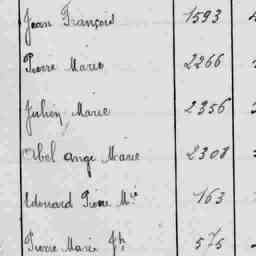 Jean François 1593
Pierre Marie 2266
Julien Marie 2356
Abel ange Marie 2308
Edouard Pierre Mie 163
Pierre Marie Jh 575